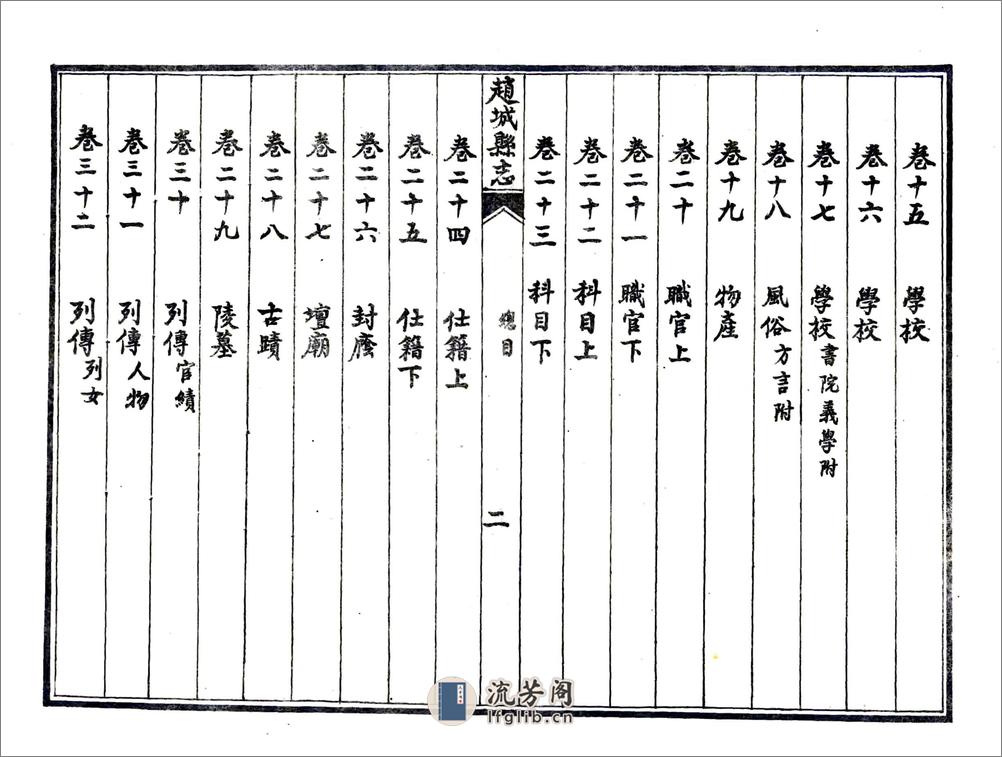 卷十五 學校
卷十六 學校
卷十七 學校書院義學附
卷十八 風俗方言附
卷十九 物產
卷二十 職官上
卷二十一 職官下
卷二十二 科目上
卷二十三 科目下
趙城縣志 總目 二
卷二十四 仕籍上
卷二十五 仕籍下
卷二十六 封廕
卷二十七 壇廟
卷二十八 古蹟
卷二十九 陵墓
卷三十 列傳官績
卷三十一 列傳人物
卷三十二 列傳列女
流芳阁
lfglib.cn